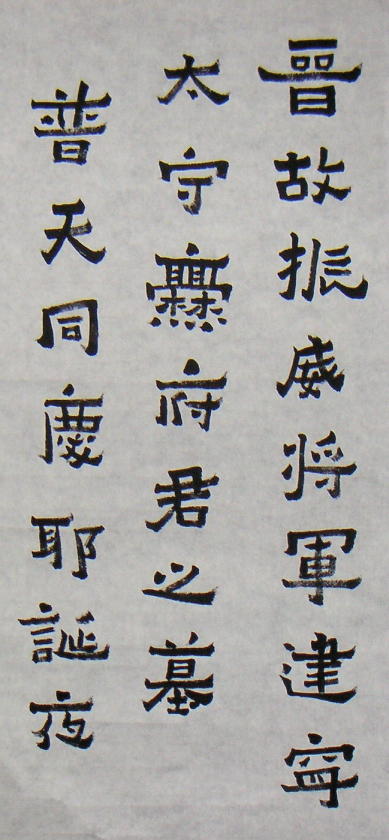 晉故振威将軍建寧
太守爨府君之墓
普天同慶耶誕夜